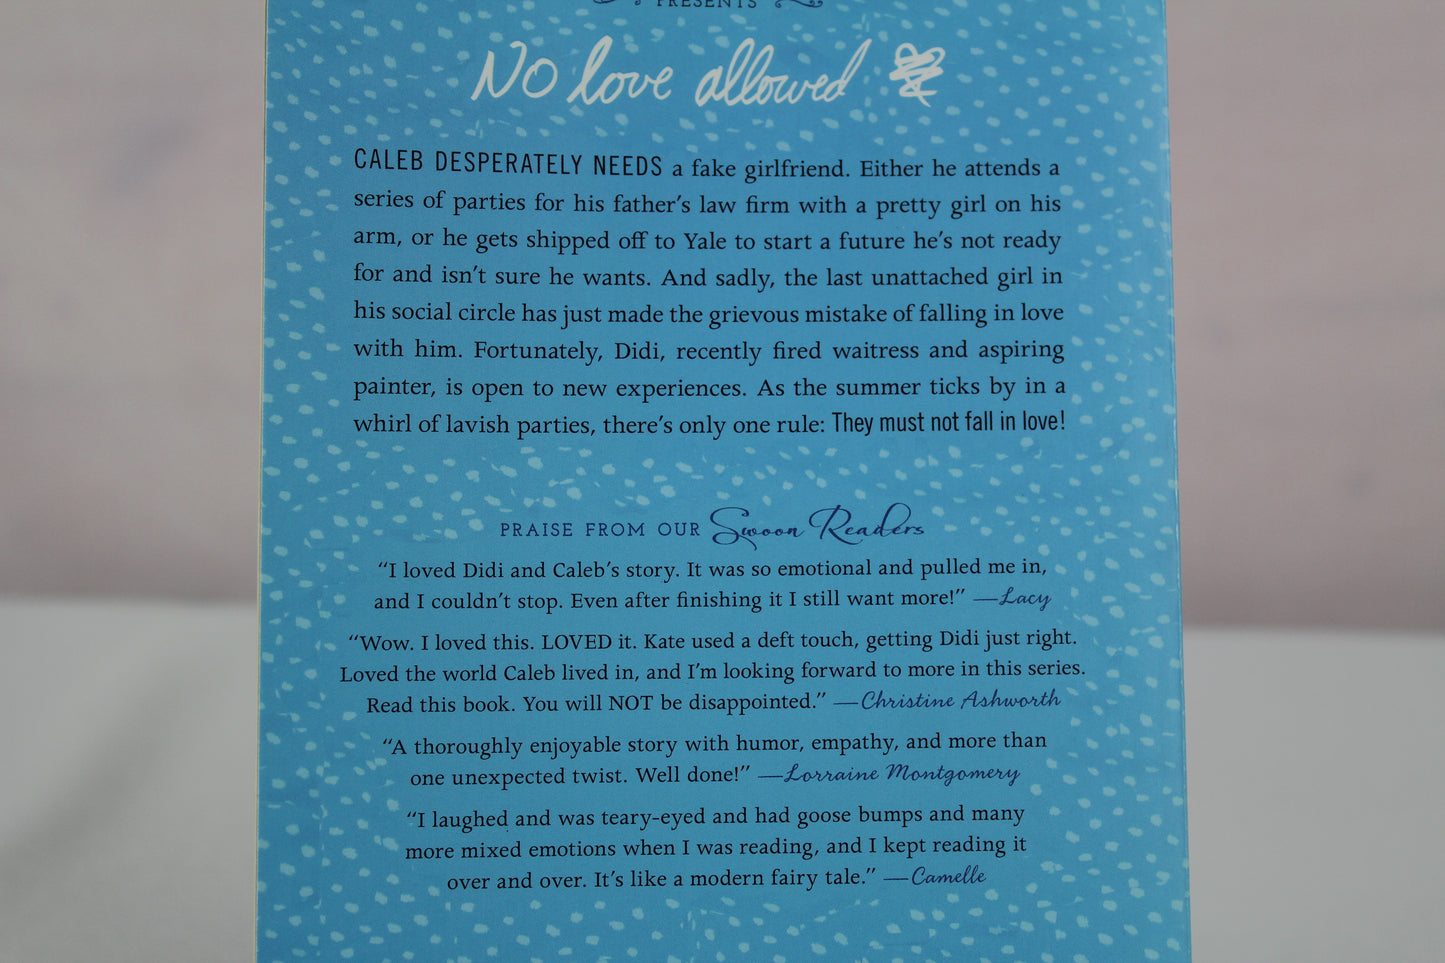 PRESENTS
No love allowed
CALEB DESPERATELY NEEDS a fake girlfriend. Either he attends a
series of parties for his father's law firm with a pretty girl on his
arm, or he gets shipped off to Yale to start a future he's not ready
for and isn't sure he wants. And sadly, the last unattached girl in
his social circle has just made the grievous mistake of falling in love
with him. Fortunately, Didi, recently fired waitress and aspiring
painter, is open to new experiences. As the summer ticks by in a
whirl of lavish parties, there's only one rule: They must not fall in love!
PRAISE FROM OUR Swoon Readers
“I loved Didi and Caleb's story. It was so emotional and pulled me in,
and I couldn't stop. Even after finishing it I still want more!” —Lacy
“Wow. I loved this. LOVED it. Kate used a deft touch, getting Didi just right.
Loved the world Caleb lived in, and I'm looking forward to more in this series.
Read this book. You will NOT be disappointed.” —Christine Ashworth
“A thoroughly enjoyable story with humor, empathy, and more than
one unexpected twist. Well done!” —Lorraine Montgomery
“I laughed and was teary-eyed and had goose bumps and many
more mixed emotions when I was reading, and I kept reading it
over and over. It's like a modern fairy tale.” —Camelle